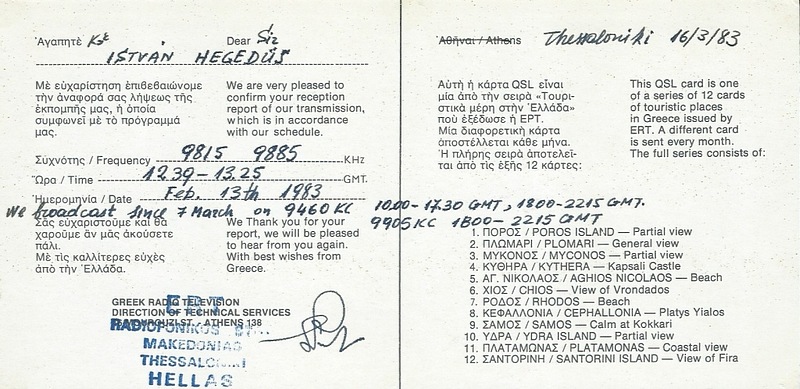 Ἀγαπητὲ Κε Dear Sir
ISTVÁN HEGEDÜS
Μὲ εὐχαρίστηση ἐπιβεβαιώνομε
τὴν ἀναφορά σας λήψεως τῆς
ἐκπομπῆς μας, ἡ ὁποία
συμφωνεῖ μὲ τὸ πρόγραμμά
μας.
We are very pleased to
confirm your reception
report of our transmission,
which is in accordance
with our schedule.
Συχνότης / Frequency 9815 9885 KHz
Ὥρα / Time 12.39-13.25 GMT.
Ἡμερομηνία / Date Feb. 13th 1983
We broadcast since 7 March on 9460 KC 1000-17.30 GMT, 1800-2215 GMT.
9905 KC 1800-2215 GMT
Σᾶς εὐχαριστοῦμε καὶ θὰ
χαροῦμε ἂν μᾶς ἀκούσετε
πάλι.
Μὲ τὶς καλλίτερες εὐχὲς
ἀπὸ τὴν Ἑλλάδα.
We Thank you for your
report, we will be pleased
to hear from you again.
With best wishes from
Greece.
GREEK RADIO TELEVISION
DIRECTION OF TECHNICAL SERVICES
ATHENS 138
E R T
RADIOFONIKOS
MAKEDONIAS
THESSALONIKI
HELLAS
Ἀθῆναι / Athens Thessaloniki 16/3/83
Αὐτὴ ἡ κάρτα QSL εἶναι
μία ἀπὸ τὴν σειρὰ «Τουρι-
στικὰ μέρη στὴν Ἑλλάδα»
ποὺ ἐξέδωσε ἡ ΕΡΤ.
Μία διαφορετικὴ κάρτα
ἀποστέλλεται κάθε μήνα.
Ἡ πλήρης σειρὰ ἀποτελεῖ-
ται ἀπὸ τὶς ἑξῆς 12 κάρτες:
This QSL card is one
of a series of 12 cards
of touristic places
in Greece issued by
ERT. A different card
is sent every month.
The full series consists of:
1. ΠΟΡΟΣ / POROS ISLAND — Partial view
2. ΠΛΩΜΑΡΙ / PLOMARI — General view
3. ΜΥΚΟΝΟΣ / MYCONOS — Partial view
4. ΚΥΘΗΡΑ / KYTHERA — Kapsali Castle
5. ΑΓ. ΝΙΚΟΛΑΟΣ / AGHIOS NICOLAOS — Beach
6. ΧΙΟΣ / CHIOS — View of Vrondados
7. ΡΟΔΟΣ / RHODOS — Beach
8. ΚΕΦΑΛΛΟΝΙΑ / CEPHALLONIA — Platys Yialos
9. ΣΑΜΟΣ / SAMOS — Calm at Kokkari
10. ΥΔΡΑ / YDRA ISLAND — Partial view
11. ΠΛΑΤΑΜΩΝΑΣ / PLATAMONAS — Coastal view
12. ΣΑΝΤΟΡΙΝΗ / SANTORINI ISLAND — View of Fira